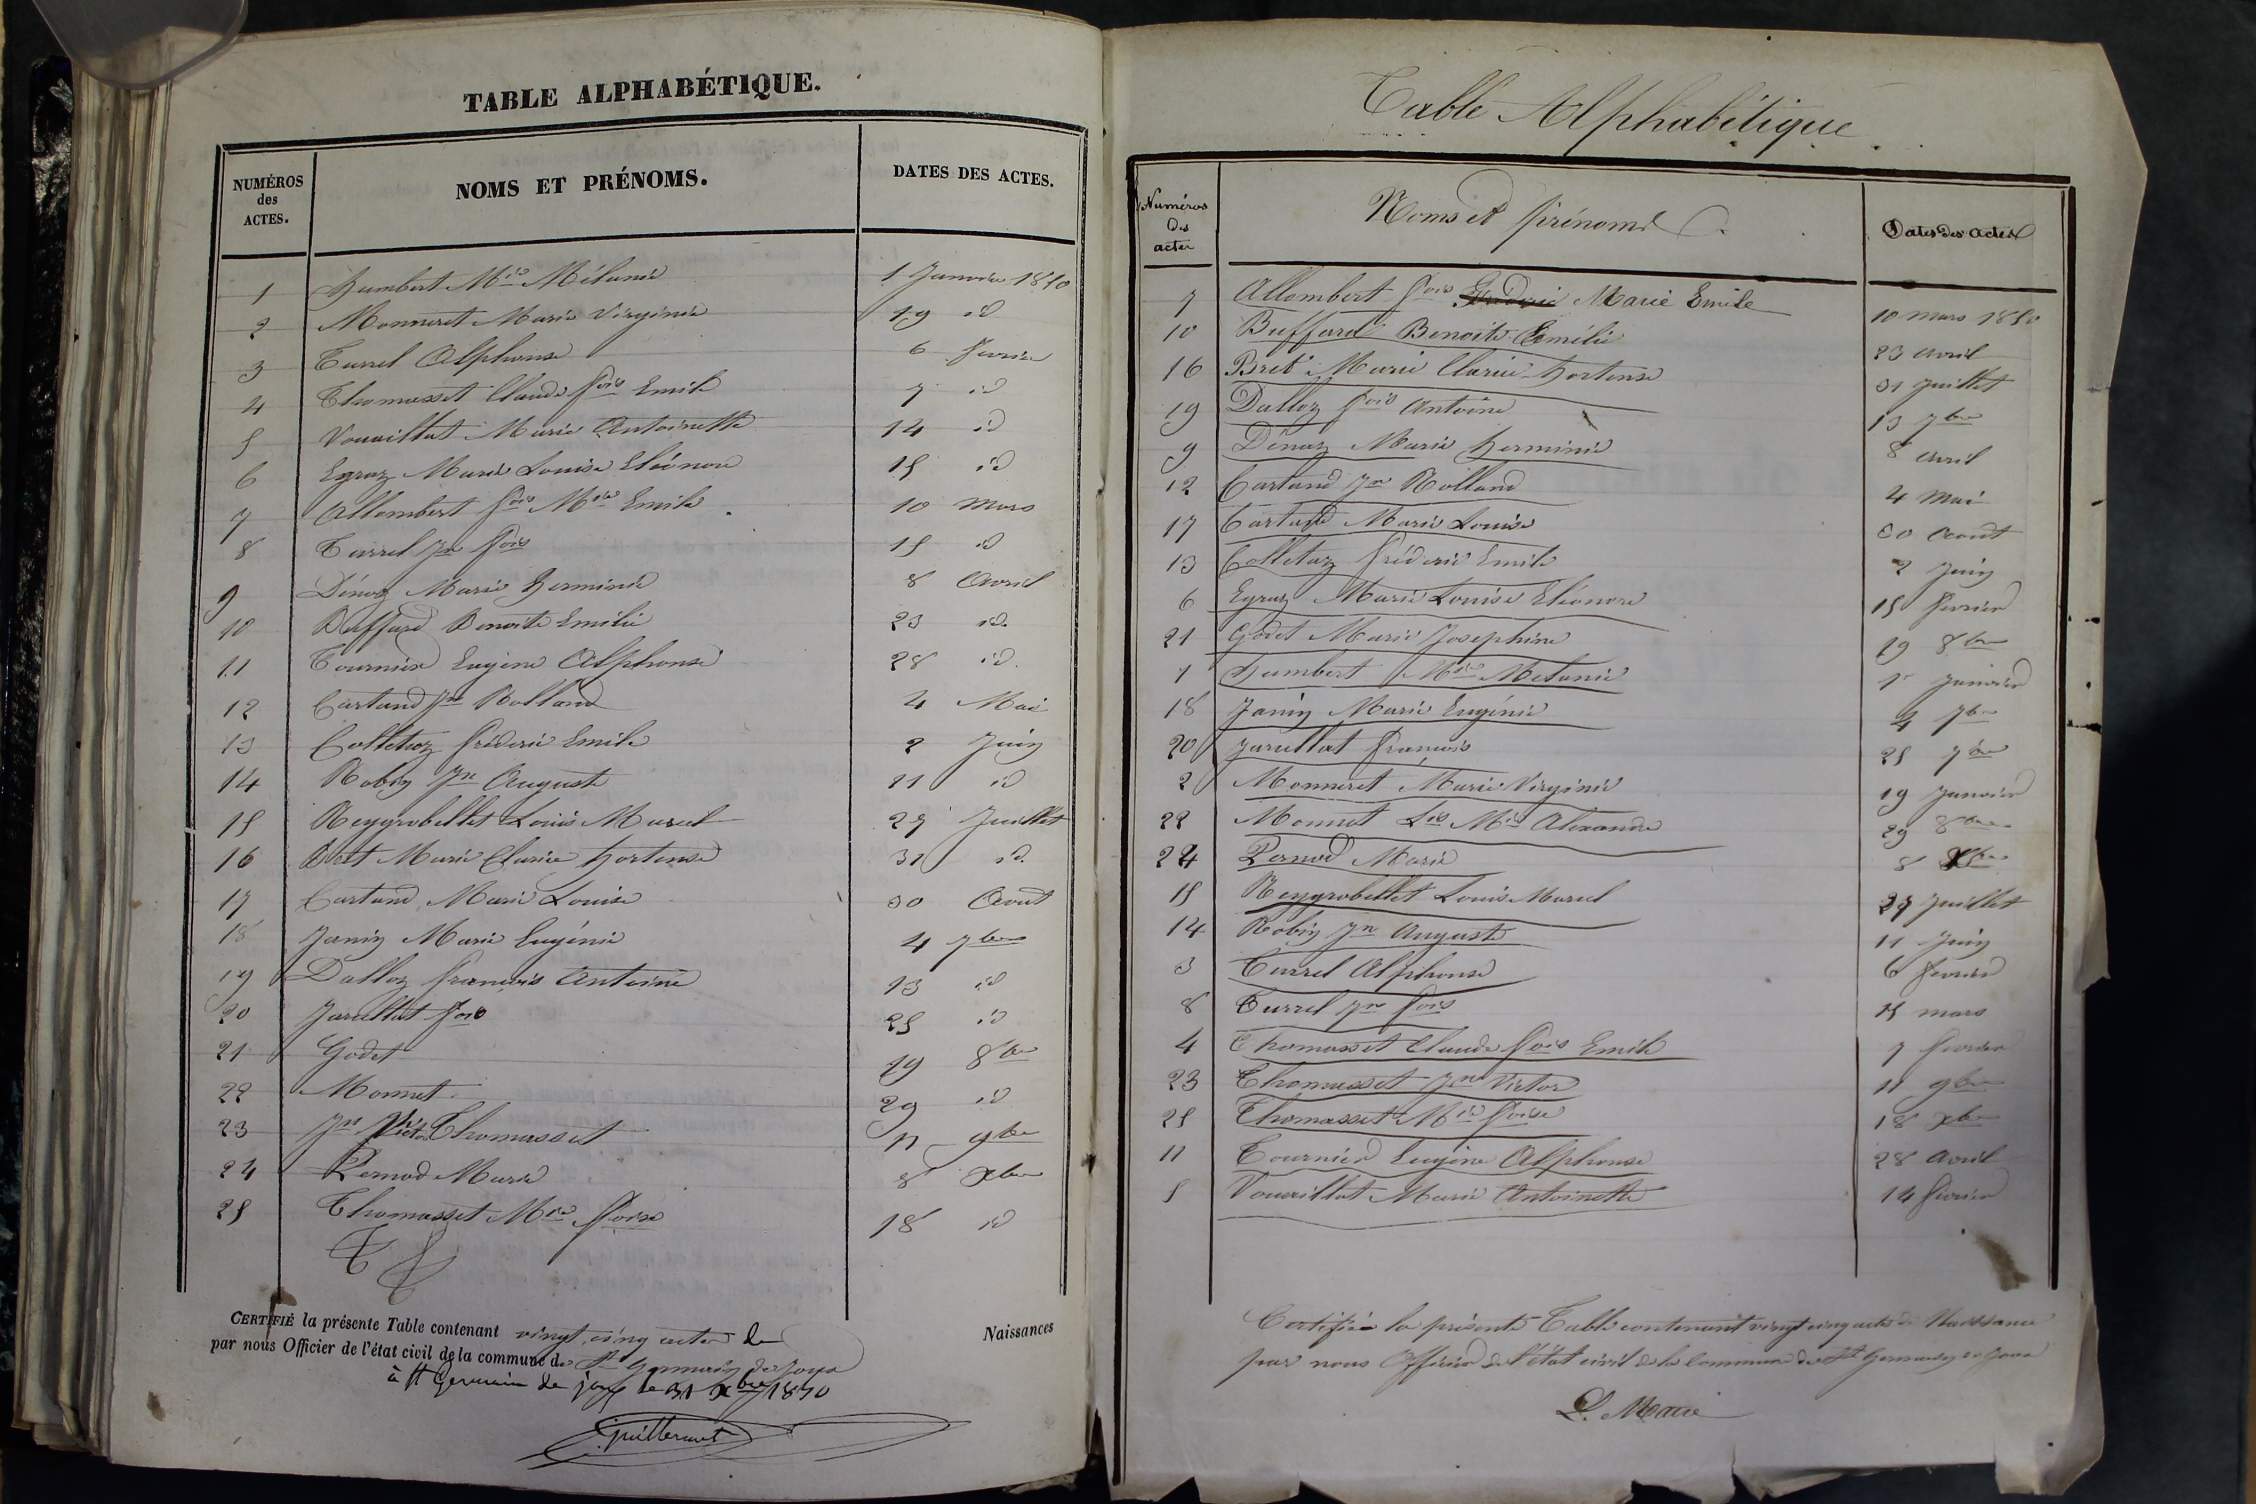 TABLE ALPHABÉTIQUE.
NUMÉROS des ACTES. NOMS ET PRÉNOMS. DATES DES ACTES.
1 Humbert Mie Mélanie 1 Janvier 1850
2 Monneret Marie Virginie 19 id
3 Turrel Alphonse 6 fevrier
4 Thomasset Claude fois Emile 7 id
5 Vouaillat Marie Antoinette 14 id
6 Egraz Marie Louise Eléonore 15 id
7 Allombert fois Mie Emile 10 Mars
8 Turrel Jn fois 15 id
9 Dénoz Marie Herminie 8 Avril
10 Buffard Benoite Emilie 23 id.
11 Tournier Eugène Alphonse 28 id.
12 Cartand Jn Rolland 4 Mai
13 Colletaz fréderic Emile 2 Juin
14 Robin Jn Auguste 11 id
15 Reygrobellet Louis Marcel 27 Juillet
16 Bret Marie Clarice hortense 31 id.
17 Cartand Marie Louise 30 Aout
18 Janin Marie Eugénie 4 7bre
19 Dalloz francois Antoine 13 id
20 Jarullat fois 25 id
21 Godet 19 8bre
22 Monnet 29 id
23 Jn Victor Thomasset 11 9bre
24 Pernod Marie 8 Xbre
25 Thomasset Mie foise 18 id
CERTIFIÉ la présente Table contenant vingt cinq actes de Naissances
par nous Officier de l'état civil de la commune de St Germain de Joux
à St Germain de joux le 31 Xbre 1850
Guillermet
Table Alphabétique
Numéros des actes Noms et prénoms Dates des actes
7 Allombert fois Marie Emile 10 mars 1850
10 Buffard Benoite Emélie 23 avril
16 Bret Marie Clarice hortense 31 Juillet
19 Dalloz fois Antoine 13 7bre
9 Dénoz Marie herminie 8 avril
12 Cartand Jn Rolland 4 Mai
17 Cartand Marie Louise 30 Aout
13 Colletaz fréderic Emile 2 Juin
6 Egraz Marie Louise Eléonore 15 fevrier
21 Godet Marie Josephine 19 8bre
1 Humbert Mie Melanie 1er Janvier
18 Janin Marie Eugénie 4 7bre
20 Jarullat francois 25 7bre
2 Monneret Marie Virginie 19 Janvier
22 Monnet Lis Mie Alexandre 29 8bre
24 Pernod Marie 8 Xbre
15 Reygrobellet Louis Marcel 27 Juillet
14 Robin Jn Auguste 11 Juin
3 Turrel Alphonse 6 fevrier
8 Turrel Jn fois 15 mars
4 Thomasset Claude fois Emile 7 fevrier
23 Thomasset Jn Victor 11 9bre
25 Thomasset Mie foise 18 Xbre
11 Tournier Eugène Alphonse 28 Avril
5 Vouaillat Marie Antoinette 14 fevrier
Certifiée la présente Table contenant vingt cinq actes de Naissance
par nous Officier de l'état civil de la Commune de St Germain de Joux
L. Maire